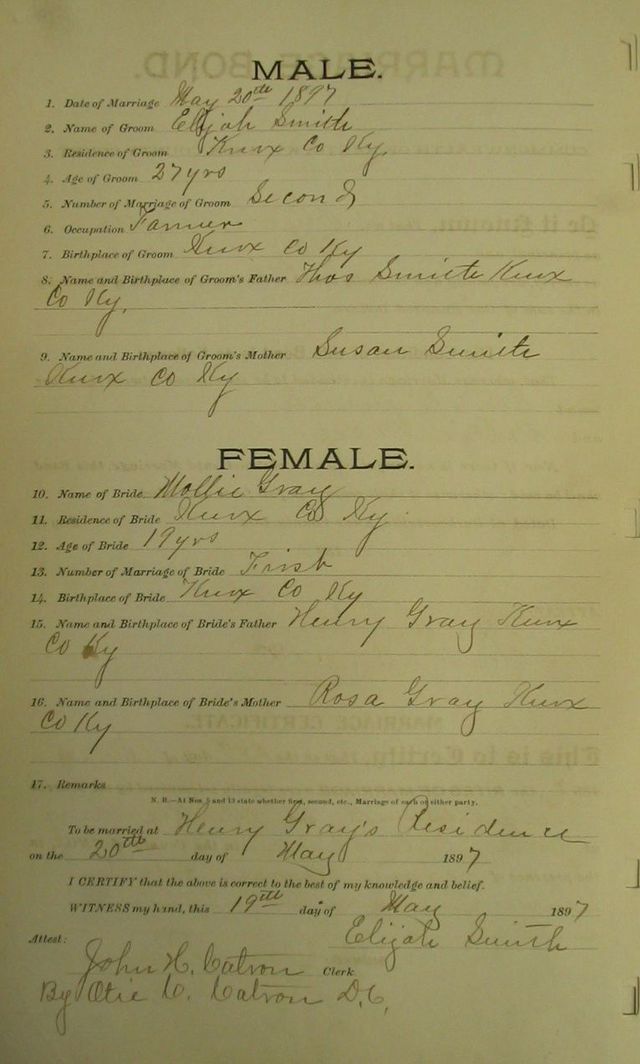 MALE.
1. Date of Marriage May 20th 1897
2. Name of Groom Elijah Smith
3. Residence of Groom Knox Co Ky.
4. Age of Groom 27 yrs
5. Number of Marriage of Groom Second
6. Occupation Farmer
7. Birthplace of Groom Knox Co Ky
8. Name and Birthplace of Groom's Father Thos Smith Knox
Co Ky.
9. Name and Birthplace of Groom's Mother Susan Smith
Knox Co Ky
FEMALE.
10. Name of Bride Mollie Gray
11. Residence of Bride Knox Co Ky.
12. Age of Bride 19 yrs
13. Number of Marriage of Bride First
14. Birthplace of Bride Knox Co Ky
15. Name and Birthplace of Bride's Father Henry Gray Knox
Co Ky
16. Name and Birthplace of Bride's Mother Rosa Gray Knox
Co Ky
17. Remarks
N. B.—At Nos. 5 and 13 state whether first, second, etc., Marriage of each or either party.
To be married at Henry Gray's Residence
on the 20th day of May 1897
I CERTIFY that the above is correct to the best of my knowledge and belief.
WITNESS my hand, this 19th day of May 1897
Elijah Smith
Attest:
John H. Catron Clerk
By Otie C. Catron D.C.